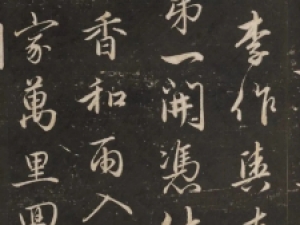 李作輿
第一開憑
香和雨入
家萬里圓